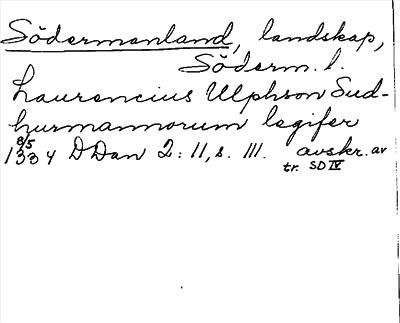 Södermanland, landskap,
Söderm. l.
Laurencius Ulphson Sud-
hurmannorum legifer
1334 8/5 DDan 2: 11, s. 111. avskr. av
tr. SD IV